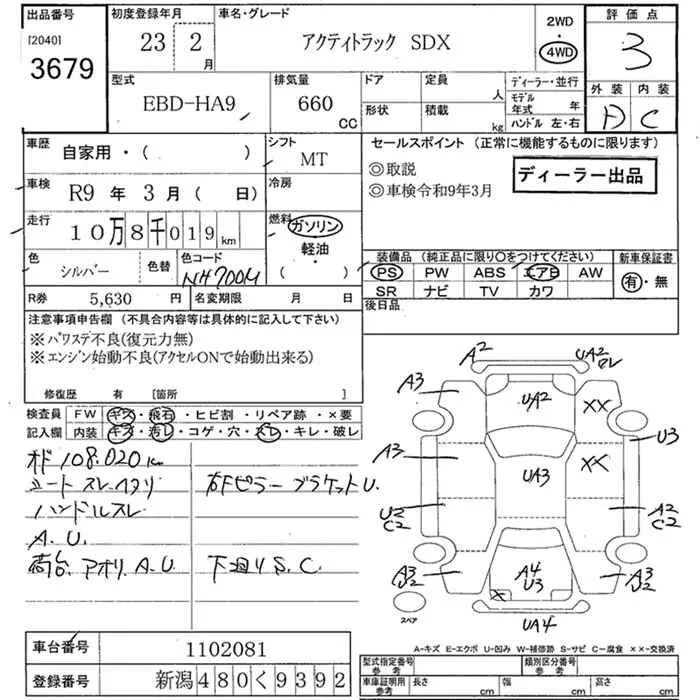 出品番号
[2040]
3679
初度登録年月
23 2
月
車名・グレード
アクティトラック SDX
2WD
・
4WD
評価点
3
外装 内装
D C
型式
EBD-HA9
排気量
660
CC
ドア
形状
定員
人
積載
kg
ディーラー・並行
モデル
年式 年
ハンドル 左・右
車歴
自家用・( )
シフト
MT
セールスポイント (正常に機能するものに限ります)
◎取説
◎車検令和9年3月
ディーラー出品
車検
R9 年 3 月 ( 日)
冷房
走行
10万8千019km
燃料
ガソリン
・
軽油
・
( )
色
シルバー
色替
色コード
NH700M
装備品 (純正品に限り〇をつけてください)
PS PW ABS エアB AW
SR ナビ TV カワ
新車保証書
有・無
R券 5,630 円
名変期限 月 日
後日品
注意事項申告欄 (不具合内容等は具体的に記入して下さい)
※パワステ不良(復元力無)
※エンジン始動不良(アクセルONで始動出来る)
修復歴 有 [箇所 ]
検査員
記入欄
FW キズ・飛石・ヒビ割・リペア跡・×要
内装 キズ・汚レ・コゲ・穴・スレ・キレ・破レ
オド 108.020 km
シート スレ ヘタリ
ハンドルスレ
A.U.
荷台 アオリ A.U.
右Fピラー ブラケットU.
下廻り S.C.
A2
UA2
A3
UA2
××
A3
××
U3
UA3
U2
C2
A2
C2
A3
A4
U3
A3
×
UA4
スペア
A-キズ E-エクボ U-凹み W-補修跡 S-サビ C-腐食 ××-交換済
車台番号 1102081
登録番号 新潟480く9392
型式指定番号
参考
類別区分番号
参考
車庫証明用
参考
長さ cm
幅 cm
高さ cm